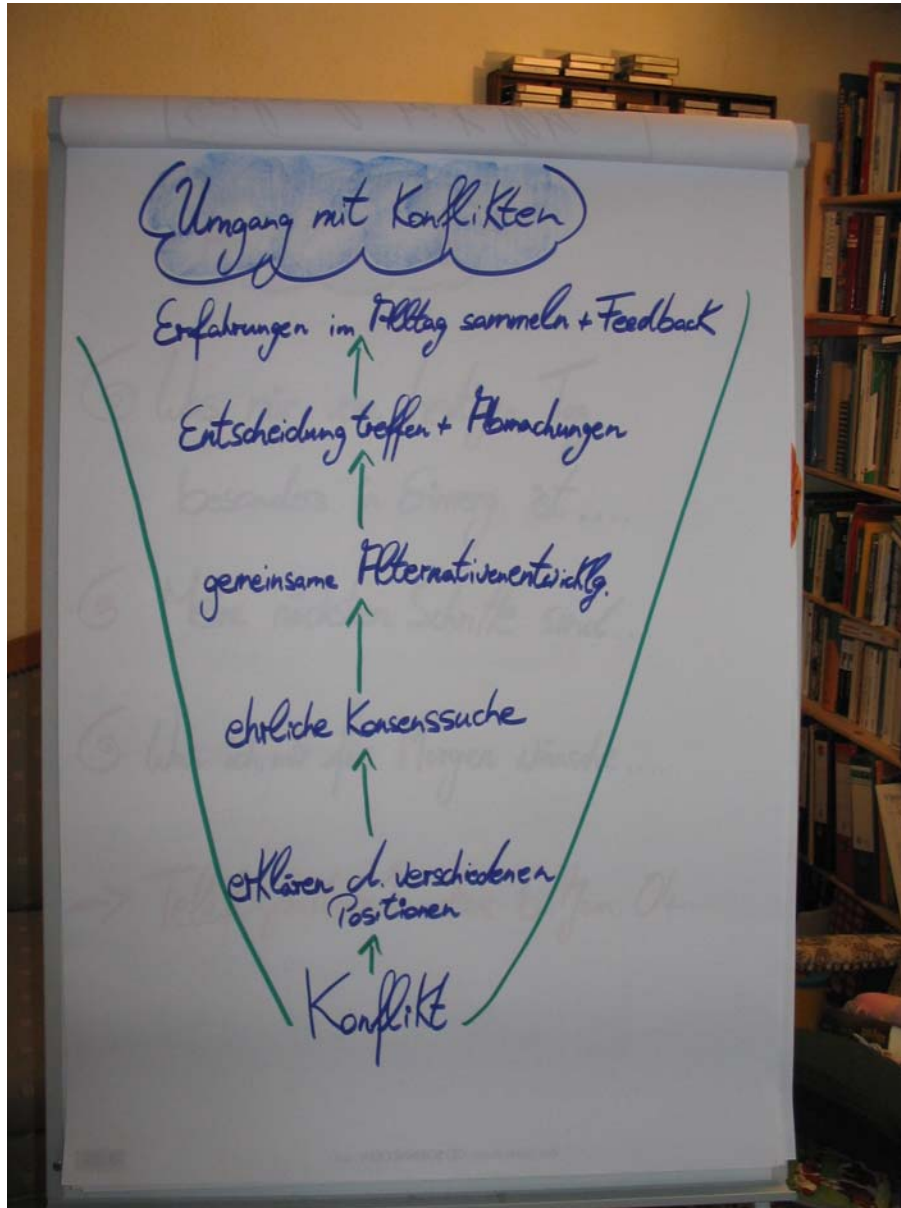 Umgang mit Konflikten
Erfahrungen im Alltag sammeln + Feedback
Entscheidung treffen + Abmachungen
gemeinsame Alternativenentwicklg.
ehrliche Konsenssuche
erklären d. verschiedenen
Positionen
Konflikt